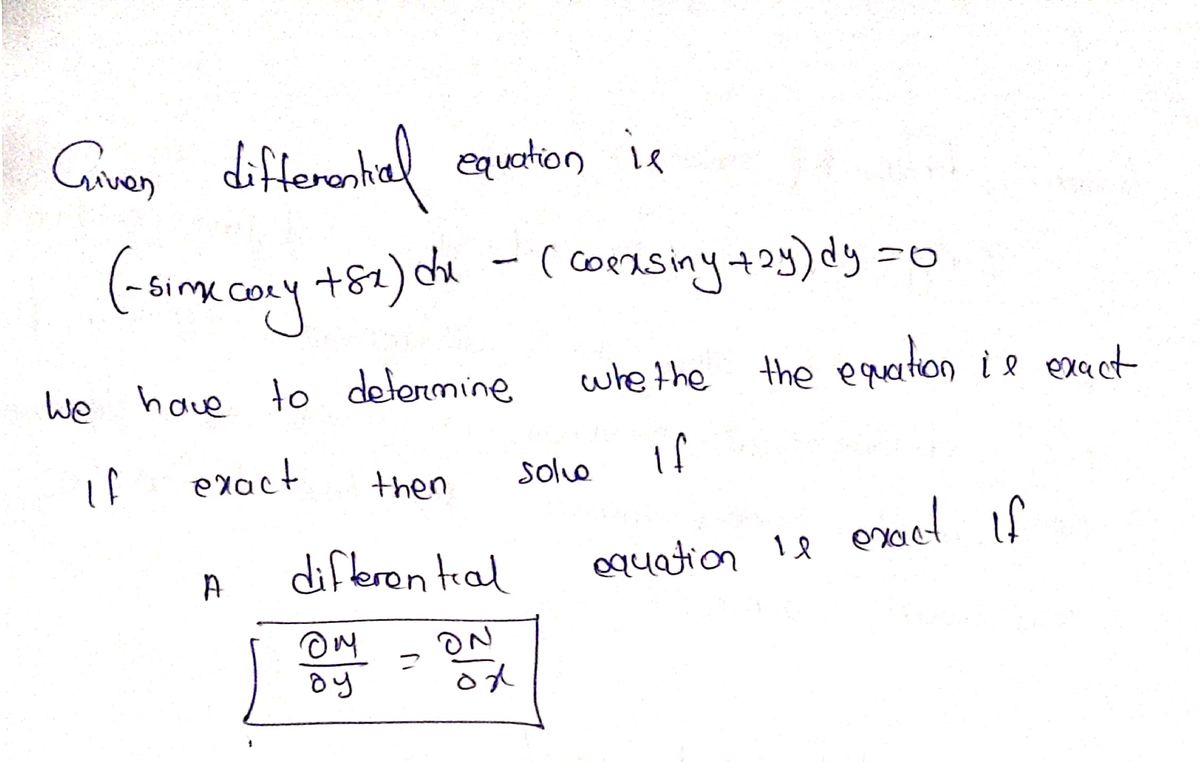 Given differential equation is
(-sinx cosy +8x) dx - (cosxsiny+2y) dy =0
We have to determine whethe the equation is exact
If exact then solve If
A differential equation is exact If
∂M/∂y = ∂N/∂x